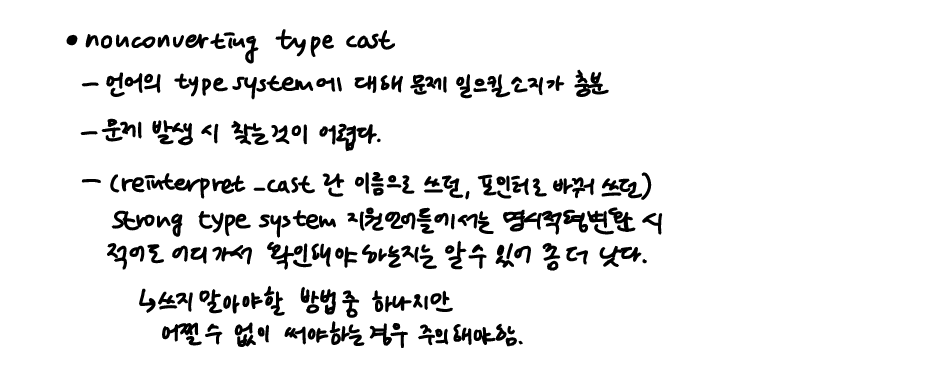 • nonconverting type cast
- 언어의 type system에 대해 문제 일으킬 소지가 충분
- 문제 발생 시 찾는 것이 어렵다.
- (reinterpret_cast 란 이름으로 쓰던, 포인터로 바꿔 쓰던)
strong type system 지원언어들에서는 명시적형변환 시
적어도 어디가서 확인해야 하는지는 알 수 있어 좀 더 낫다.
↳ 쓰지 말아야할 방법 중 하나지만
어쩔 수 없이 써야하는 경우 주의해야함.